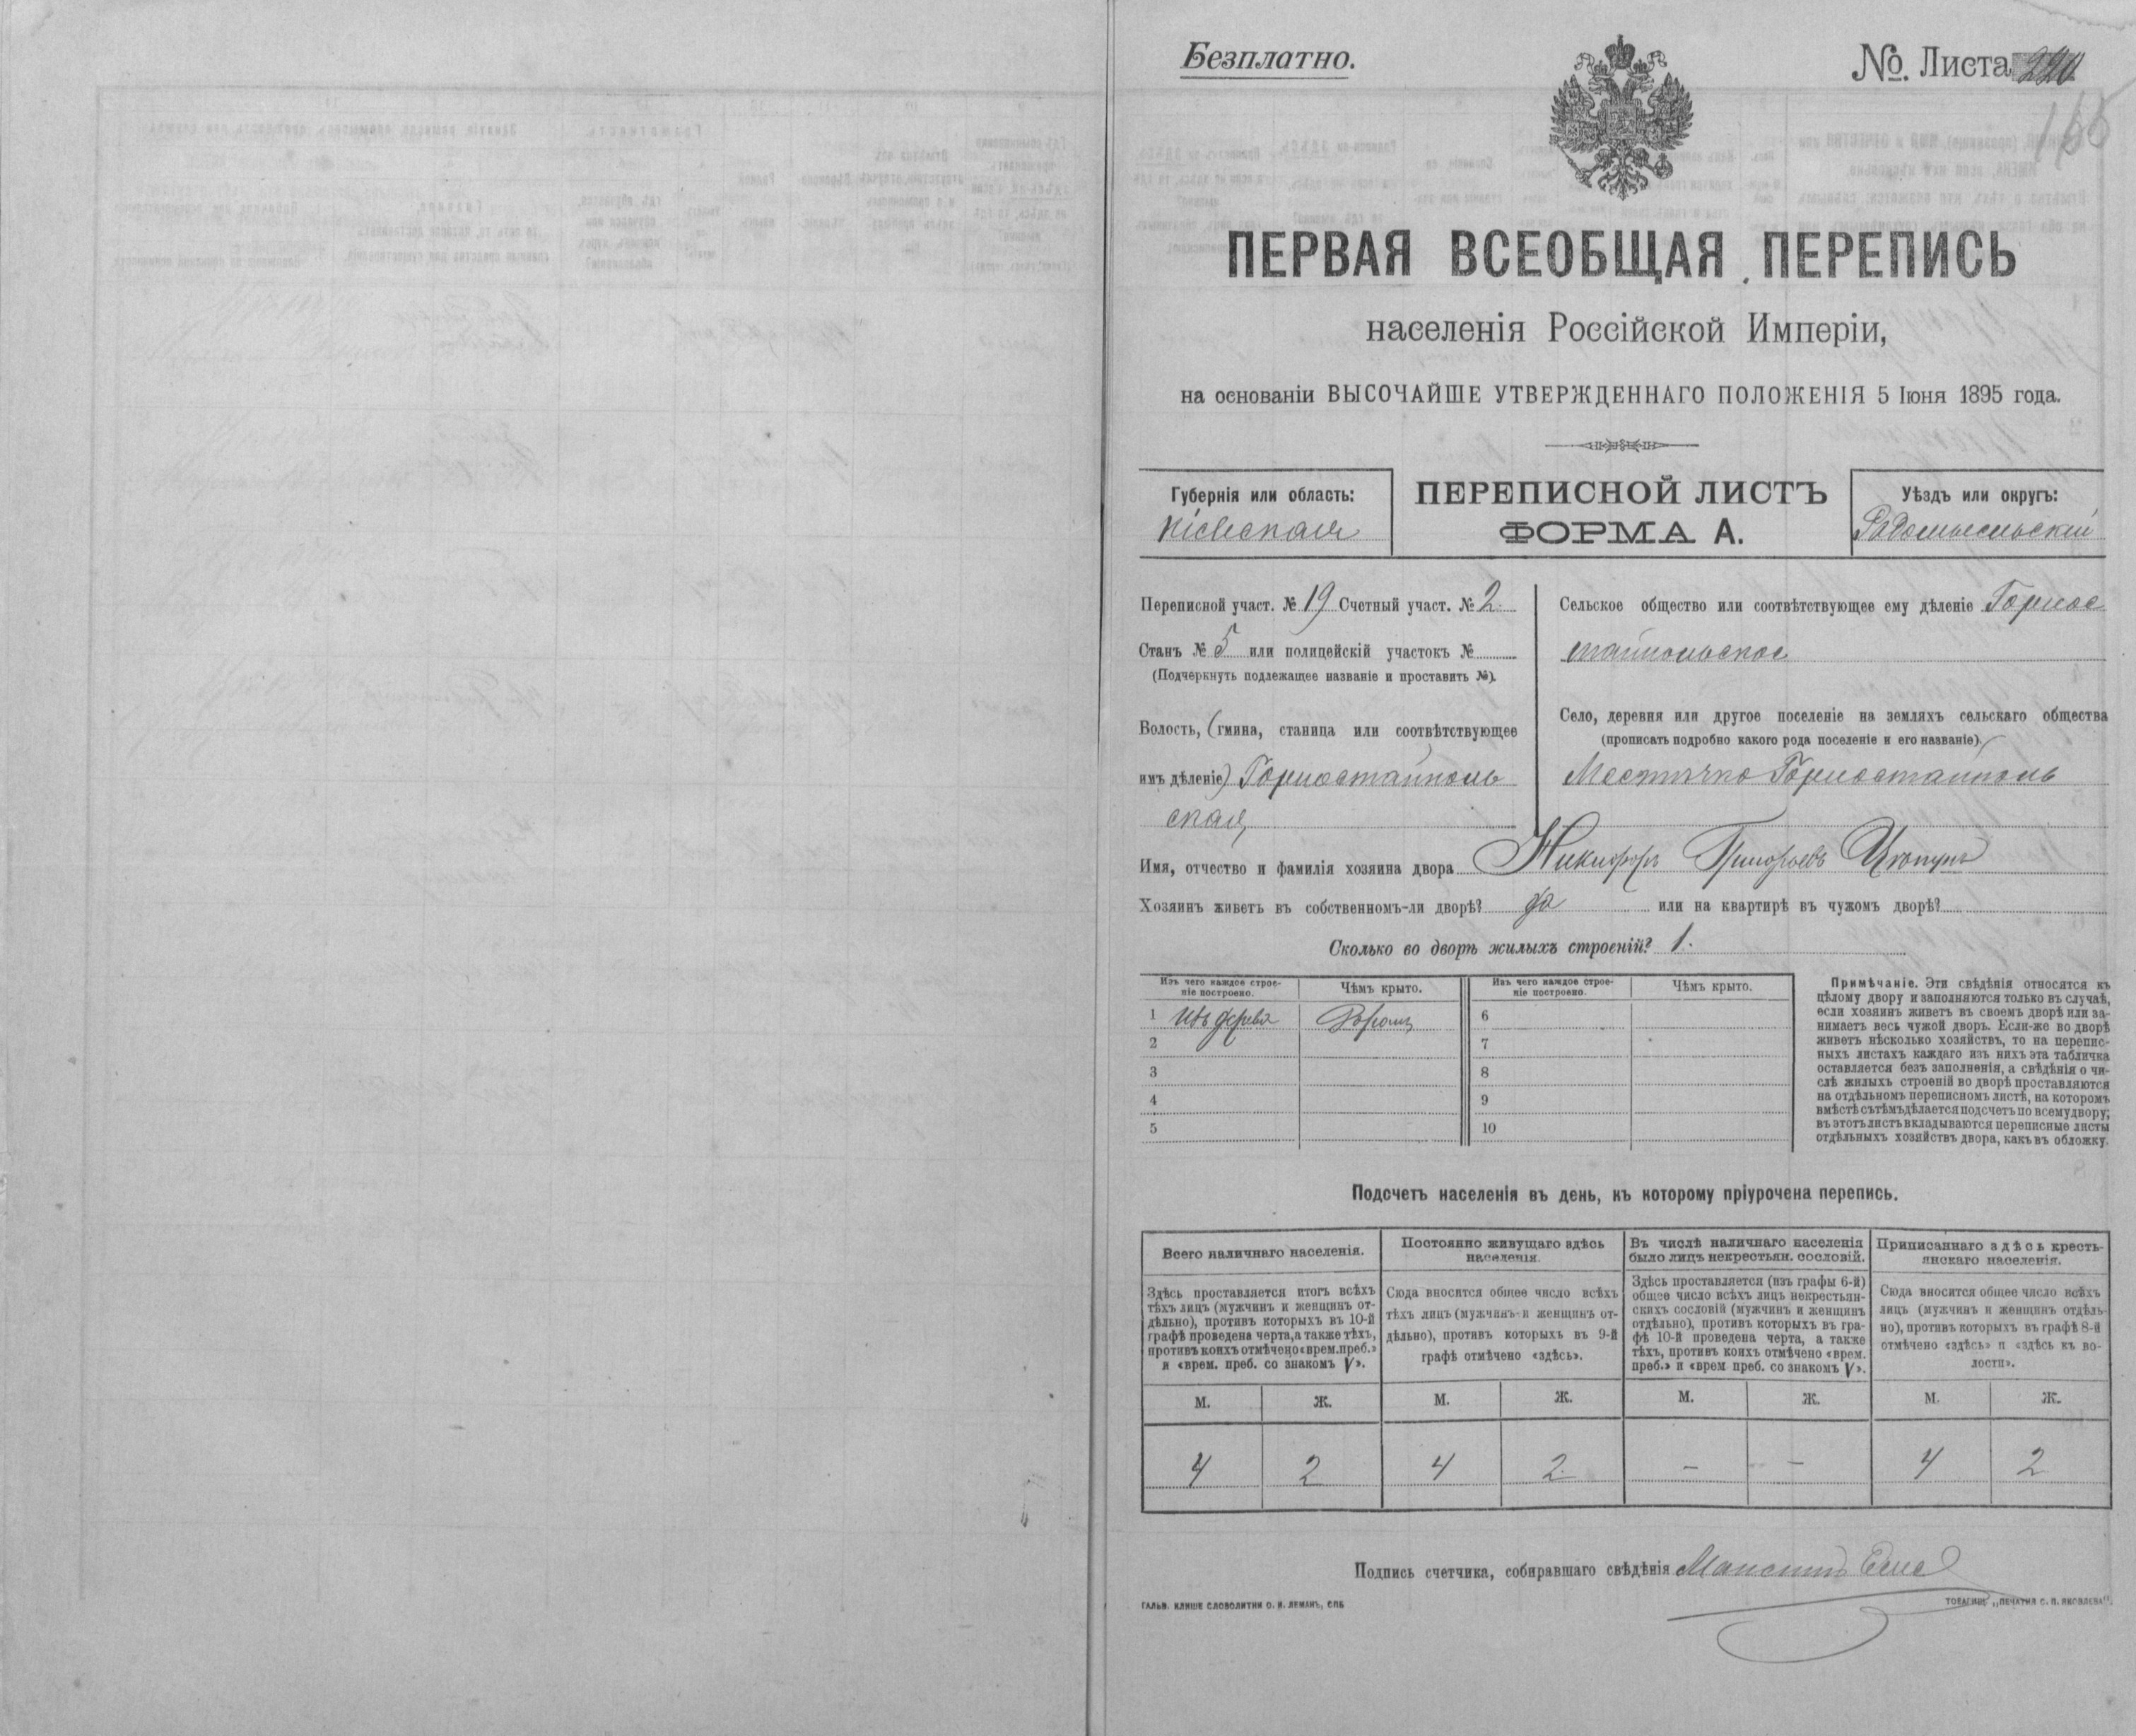 Безплатно.
№. Листа 220
ПЕРВАЯ ВСЕОБЩАЯ ПЕРЕПИСЬ
населенія Россійской Имперіи,
на основаніи ВЫСОЧАЙШЕ УТВЕРЖДЕННАГО ПОЛОЖЕНІЯ 5 Іюня 1895 года.
Губернія или область:
Кіевская
ПЕРЕПИСНОЙ ЛИСТЪ
ФОРМА А.
Уѣздъ или округъ:
Радомысльскій
Переписной участ. № 19 Счетный участ. № 2.
Станъ № 5 или полицейскій участокъ №
(Подчеркнуть подлежащее названіе и проставить №).
Волость, (гмина, станица или соотвѣтствующее
имъ дѣленіе) Горностайполь
ская
Сельское общество или соотвѣтствующее ему дѣленіе Горнос
тайпольское
Село, деревня или другое поселеніе на земляхъ сельскаго общества
(прописать подробно какого рода поселеніе и его названіе)
Местечко Горностайполь
Имя, отчество и фамилія хозяина двора Никифоръ Григорьевъ
Хозяинъ живетъ въ собственномъ-ли дворѣ? да или на квартирѣ въ чужомъ дворѣ?
Сколько во дворѣ жилыхъ строеній? 1.
Изъ чего каждое строе-
ніе построено.
Чѣмъ крыто.
1 изъ дерева
2
3
4
5
Изъ чего каждое строе-
ніе построено.
Чѣмъ крыто.
6
7
8
9
10
Примѣчаніе. Эти свѣдѣнія относятся къ
цѣлому двору и заполняются только въ случаѣ,
если хозяинъ живетъ въ своемъ дворѣ или за-
нимаетъ весь чужой дворъ. Если-же во дворѣ
живетъ нѣсколько хозяйствъ, то на перепис-
ныхъ листахъ каждаго изъ нихъ эта табличка
оставляется безъ заполненія, а свѣдѣнія о чи-
слѣ жилыхъ строеній во дворѣ проставляются
на отдѣльномъ переписномъ листѣ, на которомъ
вмѣстѣ съ тѣмъ дѣлается подсчетъ по всему двору;
въ этотъ листъ вкладываются переписные листы
отдѣльныхъ хозяйствъ двора, какъ въ обложку.
Подсчетъ населенія въ день, къ которому пріурочена перепись.
Всего наличнаго населенія.
Здѣсь проставляется итогъ всѣхъ
тѣхъ лицъ (мужчинъ и женщинъ от-
дѣльно), противъ которыхъ въ 10-й
графѣ проведена черта, а также тѣхъ,
противъ коихъ отмѣчено «врем. преб.»
и «врем. преб. со знакомъ V».
Постоянно живущаго здѣсь
населенія.
Сюда вносится общее число всѣхъ
тѣхъ лицъ (мужчинъ и женщинъ от-
дѣльно), противъ которыхъ въ 9-й
графѣ отмѣчено «здѣсь».
Въ числѣ наличнаго населенія
было лицъ некрестьян. сословій.
Здѣсь проставляется (изъ графы 6-й)
общее число всѣхъ лицъ некрестьян-
скихъ сословій (мужчинъ и женщинъ
отдѣльно), противъ которыхъ въ гра-
фѣ 10-й проведена черта, а также
тѣхъ, противъ коихъ отмѣчено «врем.
преб.» и «врем преб. со знакомъ V».
Приписаннаго здѣсь кресть-
янскаго населенія.
Сюда вносится общее число всѣхъ
лицъ (мужчинъ и женщинъ отдѣль-
но), противъ которыхъ въ графѣ 8-й
отмѣчено «здѣсь» и «здѣсь къ во-
лости».
М. Ж. М. Ж. М. Ж. М. Ж.
4 2 4 2 – – 4 2
Подпись счетчика, собиравшаго свѣдѣнія
ГАЛЬВ. КЛИШЕ СЛОВОЛИТНИ О. И. ЛЕМАНЪ, СПБ
ТОВАРИЩ. „ПЕЧАТНЯ С. П. ЯКОВЛЕВА".